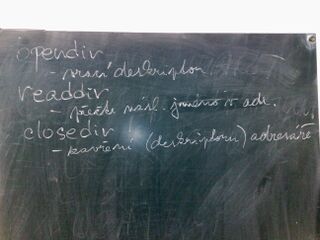 opendir
- vrací deskriptor
readdir
- přečte násl. jméno v adr.
closedir
- zavření (deskriptoru) adresáře